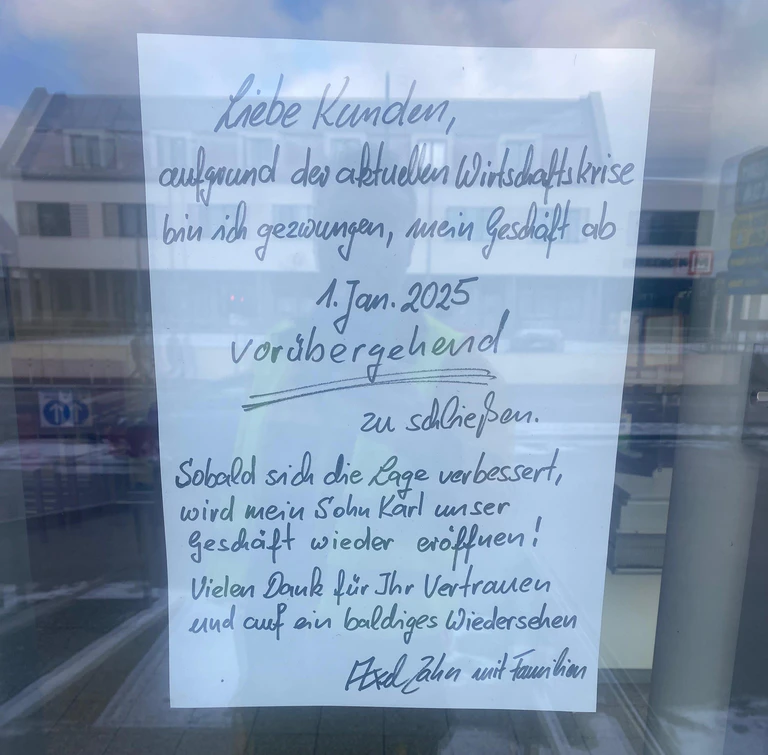 Liebe Kunden,
aufgrund der aktuellen Wirtschaftskrise
bin ich gezwungen, mein Geschäft ab
1. Jan. 2025
vorübergehend
zu schließen.
Sobald sich die Lage verbessert,
wird mein Sohn Karl unser
Geschäft wieder eröffnen!
Vielen Dank für Ihr Vertrauen
und auf ein baldiges Wiedersehen
Axel Zahn mit Familien